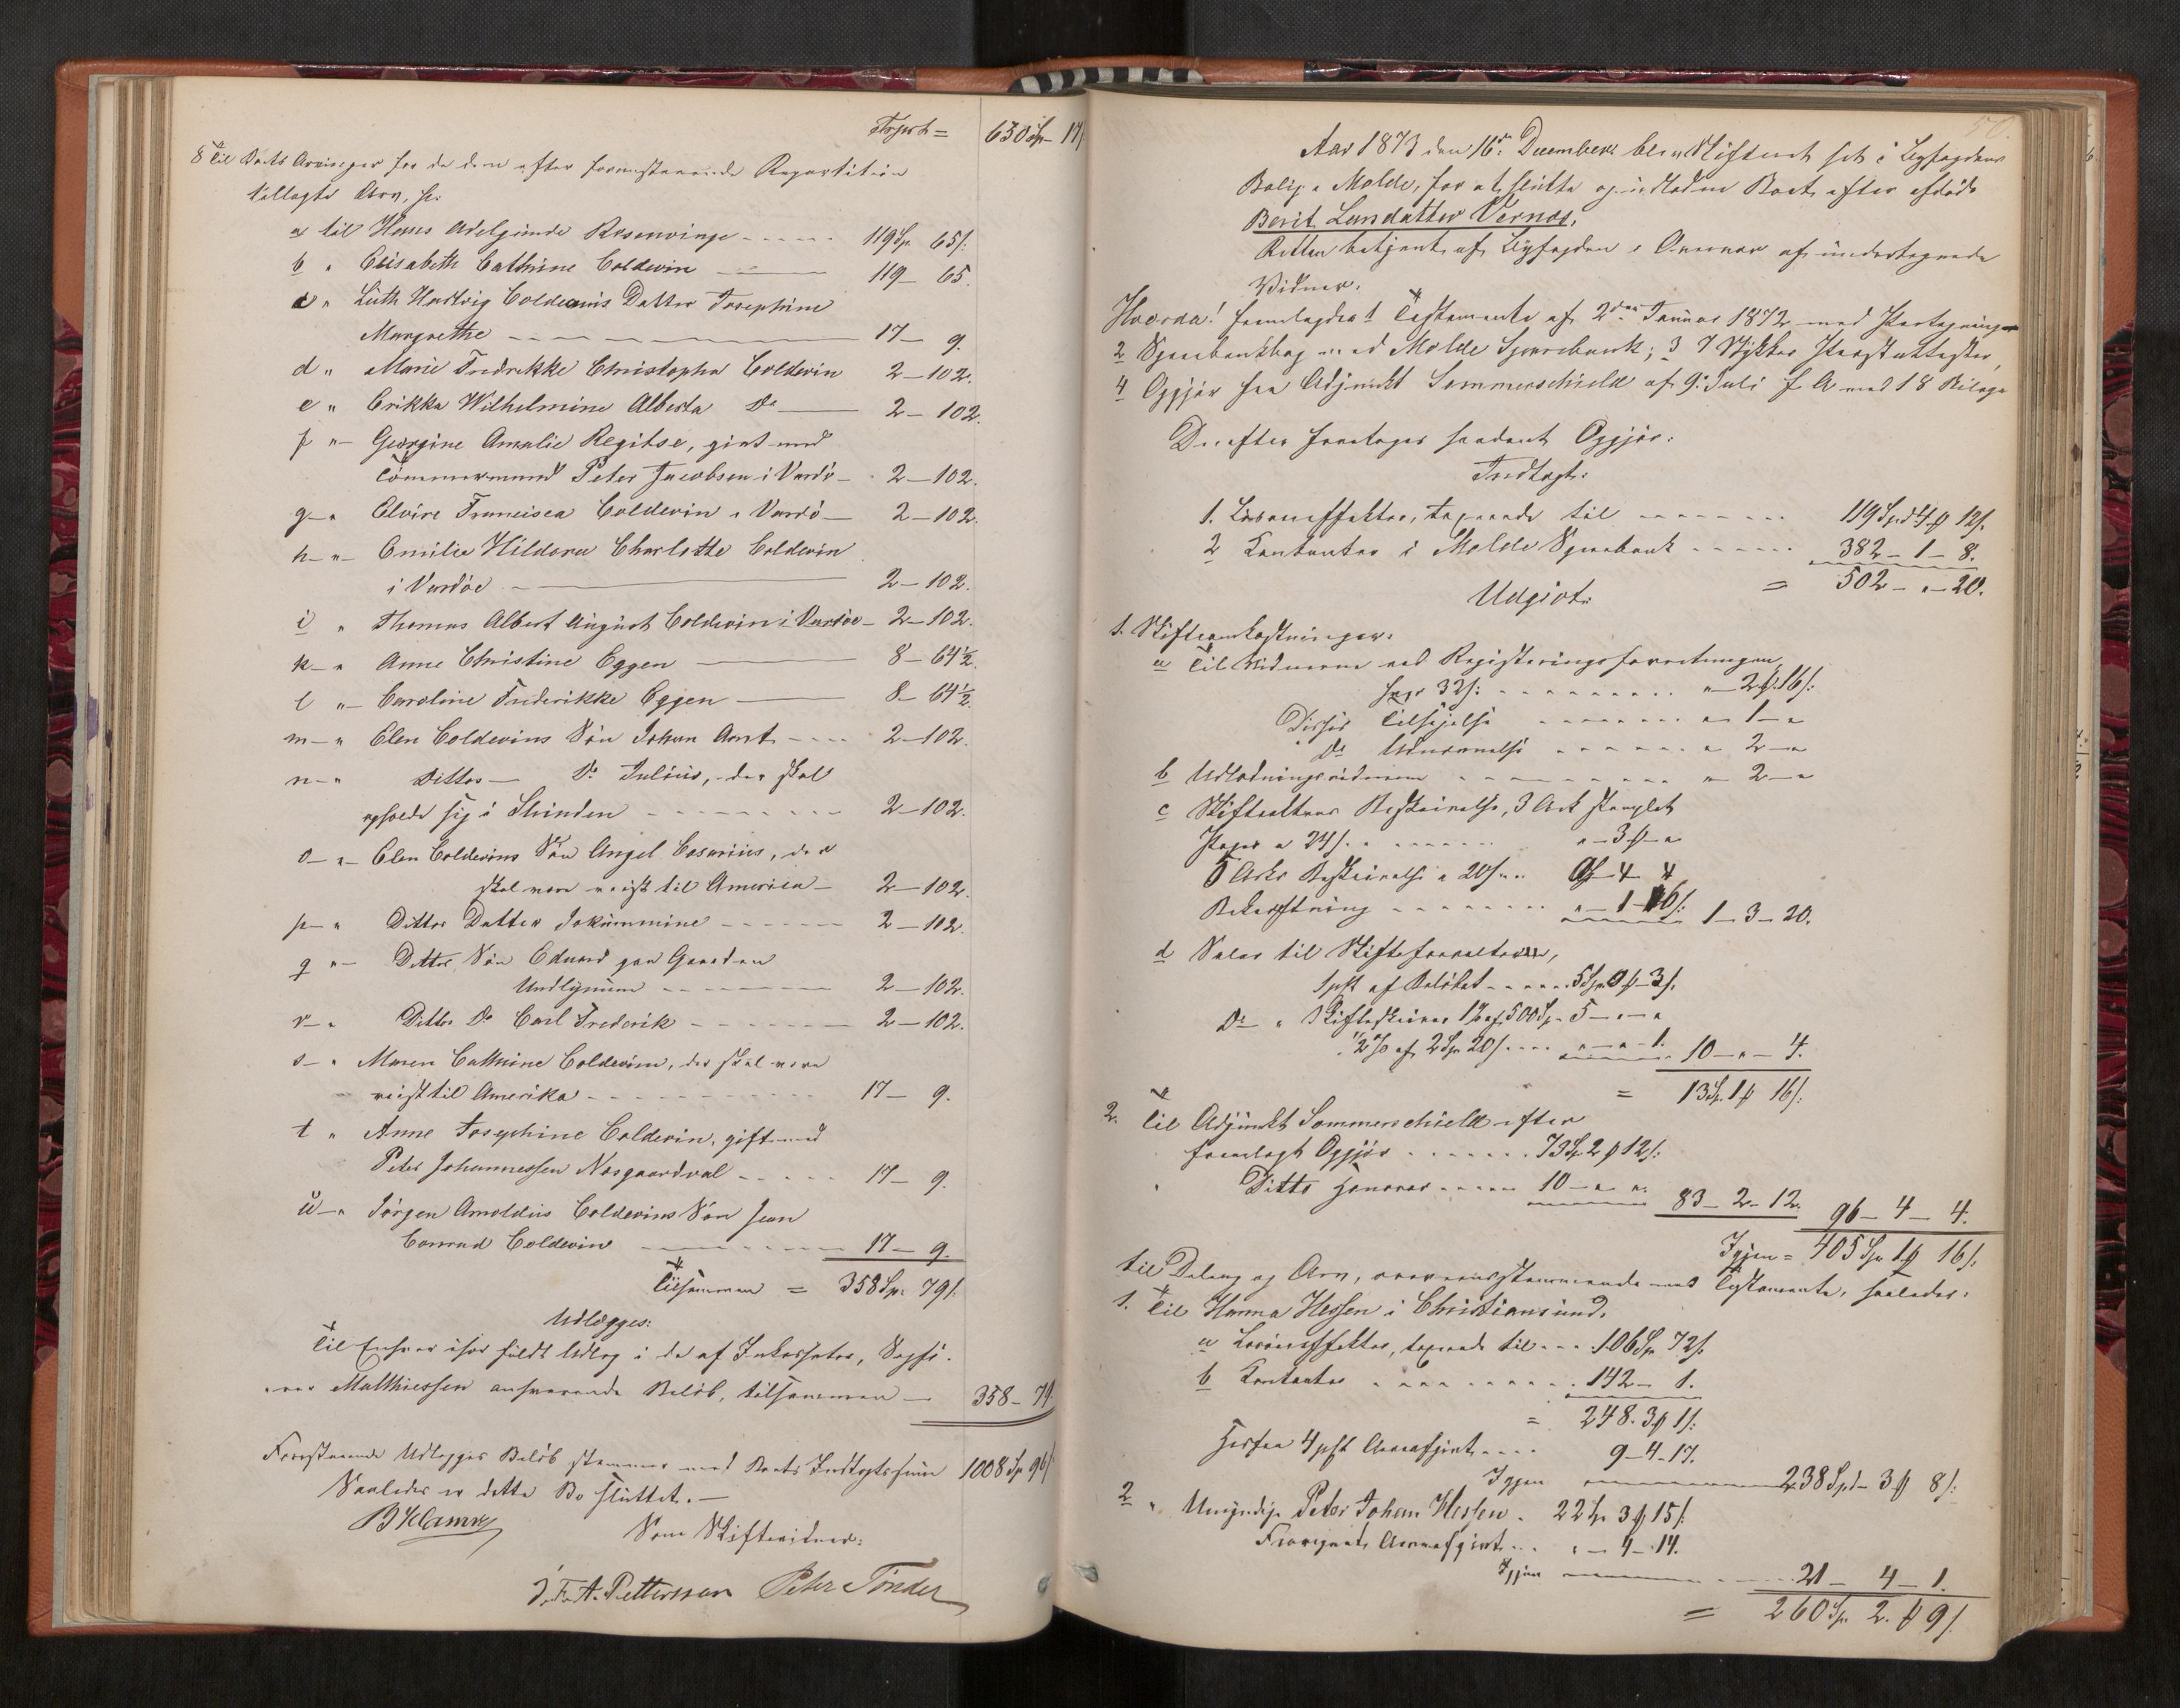 Transport = 630 Sp - 17
8 Til Boets Arvinger for da dem efter foranstaaende Repartition
tillagte Arv, sc:
a til Hans Adelgunde Rosenvinge 119 Sp 65 s:
b " Elisabeth Cathrine Coldevin 119 - 65.
c " Lüth Hartvig Coldevins Datter Josephine
Margrethe 17 - 9.
d " Marie Fredrikke Christopha Coldevin 2 - 102.
e " Erikka Wilhelmine Alberta Do 2 - 102.
f " Georgine Amalie Regitse, gift med
Tömmermand Peter Jacobsen i Vardö 2 - 102.
g " Elvire Francisca Coldevin i Vardö 2 - 102.
h " Emilie Hildora Charlotte Coldevin
i Vardöe 2 - 102.
i " Thomas Albert August Coldevin i Vardöe 2 - 102.
k " Anne Christine Eggen 8 - 64½.
l " Caroline Frederikke Eggen 8 - 64½.
m " Elen Coldevins Sön Johan Arnt 2 - 102.
n " Dittos Do Julius, der skal
opholde sig i Thrinden 2 - 102.
o " Elen Coldevins Sön Angel Cesarius, der
skal være reist til America 2 - 102.
p " Dittos Datter Jokumine 2 - 102.
q " Dittos Sön Eduard paa Gaarden
Undlynium 2 - 102.
r " Dittos Do Carl Frederik 2 - 102.
s " Maren Cathrine Coldevin, der skal være
reist til Amerika 17 - 9.
t " Anne Josephine Coldevin, gift med
Peter Johannessen Nosgaardval 17 - 9.
u " Jörgen Arnoldus Coldevins Sön Jean
Conrad Coldevin 17 - 9.
Tilsammen = 358 Sp. 79 s.
Udlægges:
Til Enhver især fuldt Udlæg i de af Inkassator, Sagfö-
rer Matthiessen ansvarende Belöb, tilsammen 358 - 79
Foranstaaende Udlægges Belöb stemmer med Boets Indtægtssum 1008 Sp 96 s
Saaledes er dette Bo sluttet.
Som Skiftevidner:
J. F. A. Pettersson Peter Tönder
50.
Aar 1873 den 16de December blev Skifteret sat i Byfogdens
Bolig i Molde, for at slutte og udlodne Boet efter afdöde
Berit Larsdatter Vernes.
Retten betjent af Byfogden i Overvær af undertegnede
Vidner.
Hvorda! fremlagdes 1 Testamente af 2den Januar 1872 med Paategning
2 Sparebankbog med Molde Sparebank; 3 7 Stykker Præsteattester,
4 Opgjör fra Adjunkt Sommerschield af 9. Juli f. A. med 18 Bilage
Derefter foretoges saadant Opgjör:
Indtægt:
1. Lösöreffekter, taxerede til 119 Spd 4 # 12 s.
2 Kontanter i Molde Sparebank 382 - 1 - 8.
= 502 - " - 20.
Udgivt:
1. Skifteomkostninger:
a Til Vidnerne ved Registeringsforretningen
hver 32 s: " - 2 # 16 s:
Disses Tilsigelse " - 1 - "
Do Udnævnelse " 2 - "
b Udlodningsvidnerne " 2 - "
c Skifteaktens Beskrivelse, 3 Ark stemplet
Papir a 24 s. " - 3 # - "
5 Arks Beskrivelse a 20 s. " - 4 - 4
Bekræftning " - 1 - 16 s: 1 - 3 - 20.
d Salær til Skifteforvalteren,
1 pCt af Belöbet 5 Sp 0 # - 3 s.
Do " Skifteskriver 1% af 500 Sp. 5 - " - "
½% af 2 Sp 20 s. " - " - 1. 10 - " - 4.
= 13 Sp. 1 # 16 s:
2. Til Adjunkt Sommerschield efter
fremlagt Opgjör 73 Sp. 2 # 12 s:
Ditto Honorar 10 - " ". 83 - 2 - 12. 96 - 4 - 4.
Igjen = 405 Sp 1 # 16 s.
til Deling og Arv, overensstemmende med Testamente, saaledes:
1. Til Hanna Hessen i Christiansund.
a Lösöreffekter, taxerede til 106 Sp 72 s.
b Kontanter 142 - 1.
= 248. 3 # 1 s:
Herfra 4 pCt Arveafgivt 9 - 4 - 17.
Igjen 238 Spd - 3 # 8 s:
2 " Umyndige Peter Johan Hessen 22 Sp 3 # 15 s:
Fragaaet Arveafgivt " - 4 - 14.
Igjen 21 - 4 - 1.
= 260 Sp. 2. # 9 s